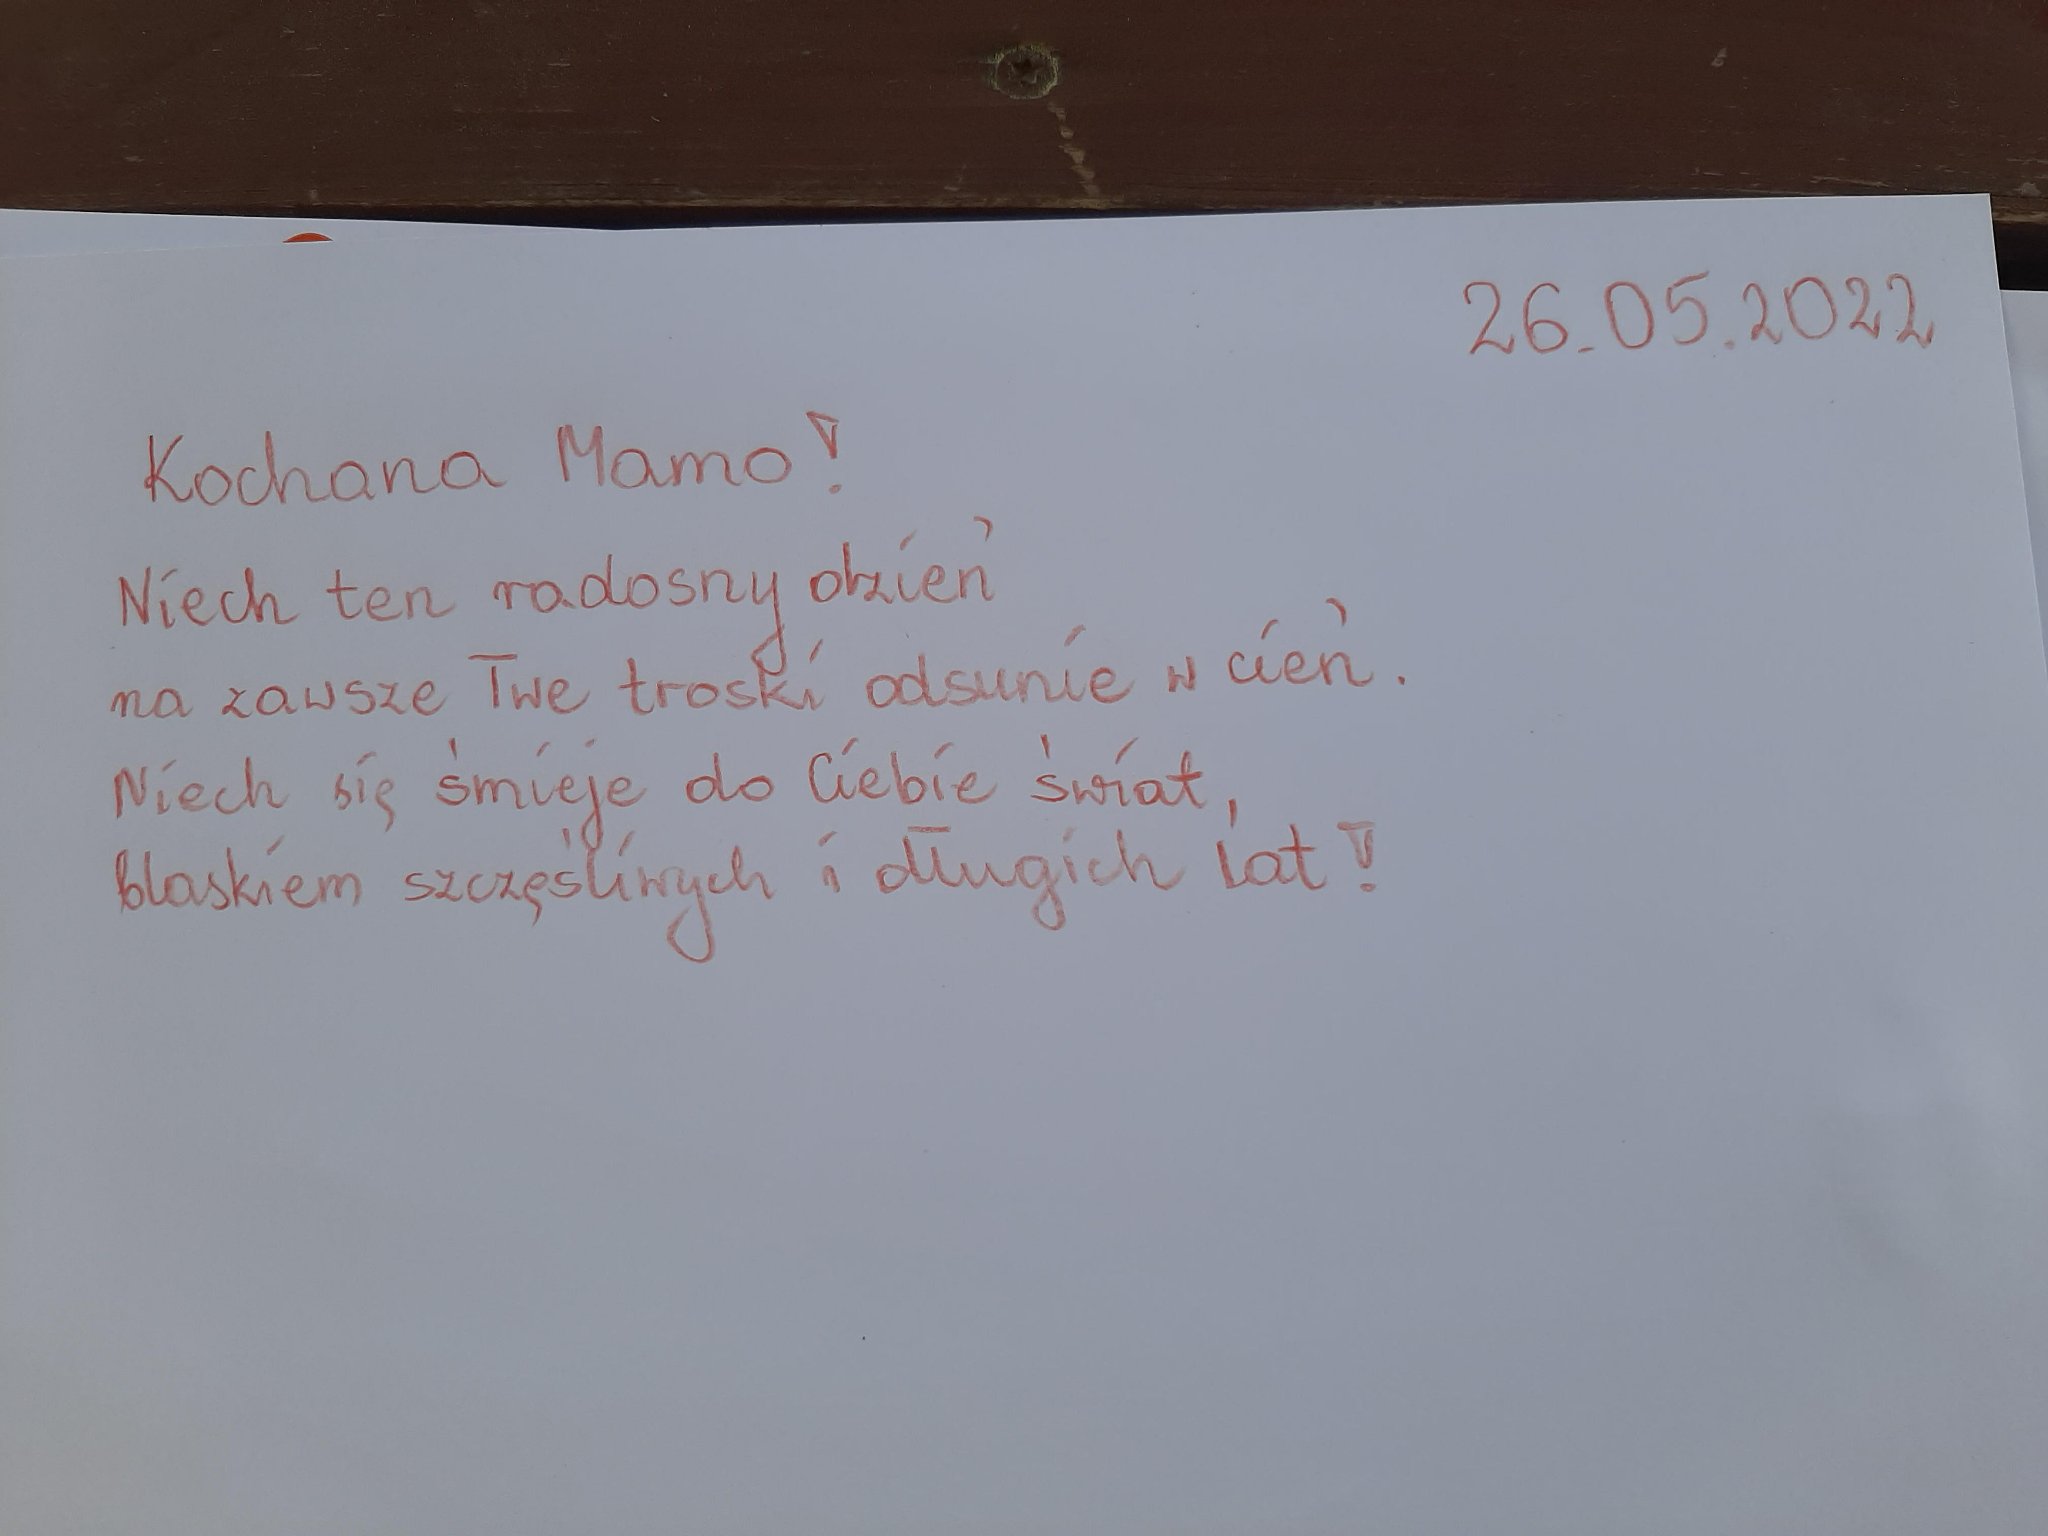 26.05.2022
Kochana Mamo!
Niech ten radosny dzień
na zawsze Twe troski odsunie w cień.
Niech się śmieje do Ciebie świat,
blaskiem szczęśliwych i długich lat!